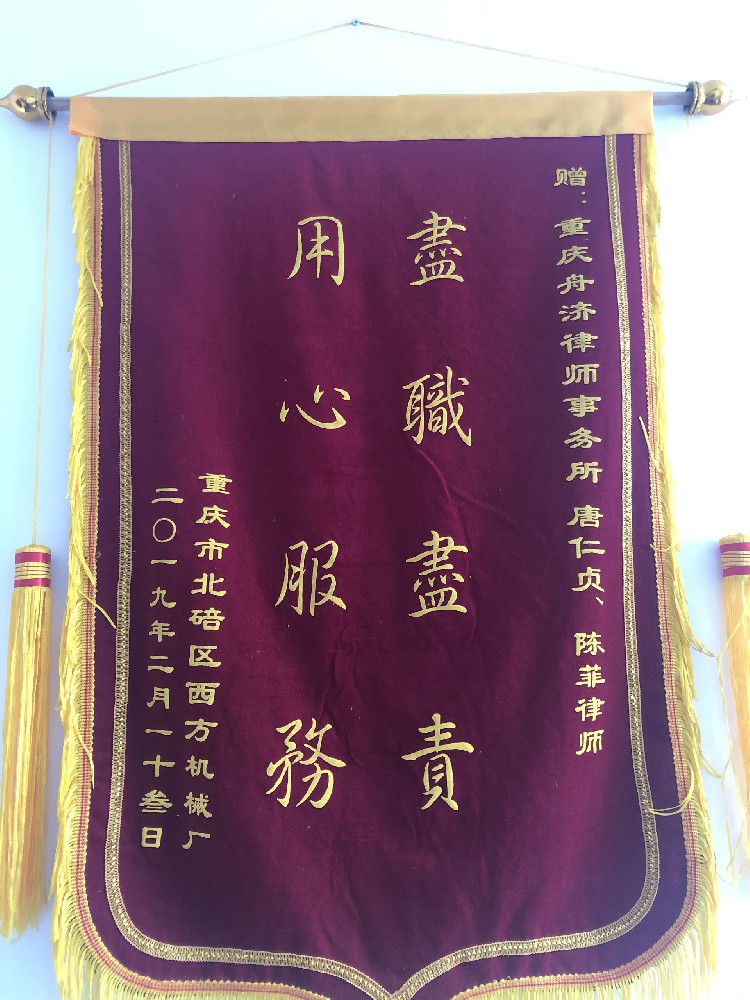 赠：重庆舟济律师事务所 唐仁贞、陈菲律师
盡職盡責
用心服務
重庆市北碚区西方机械厂
二〇一九年二月一十叁日